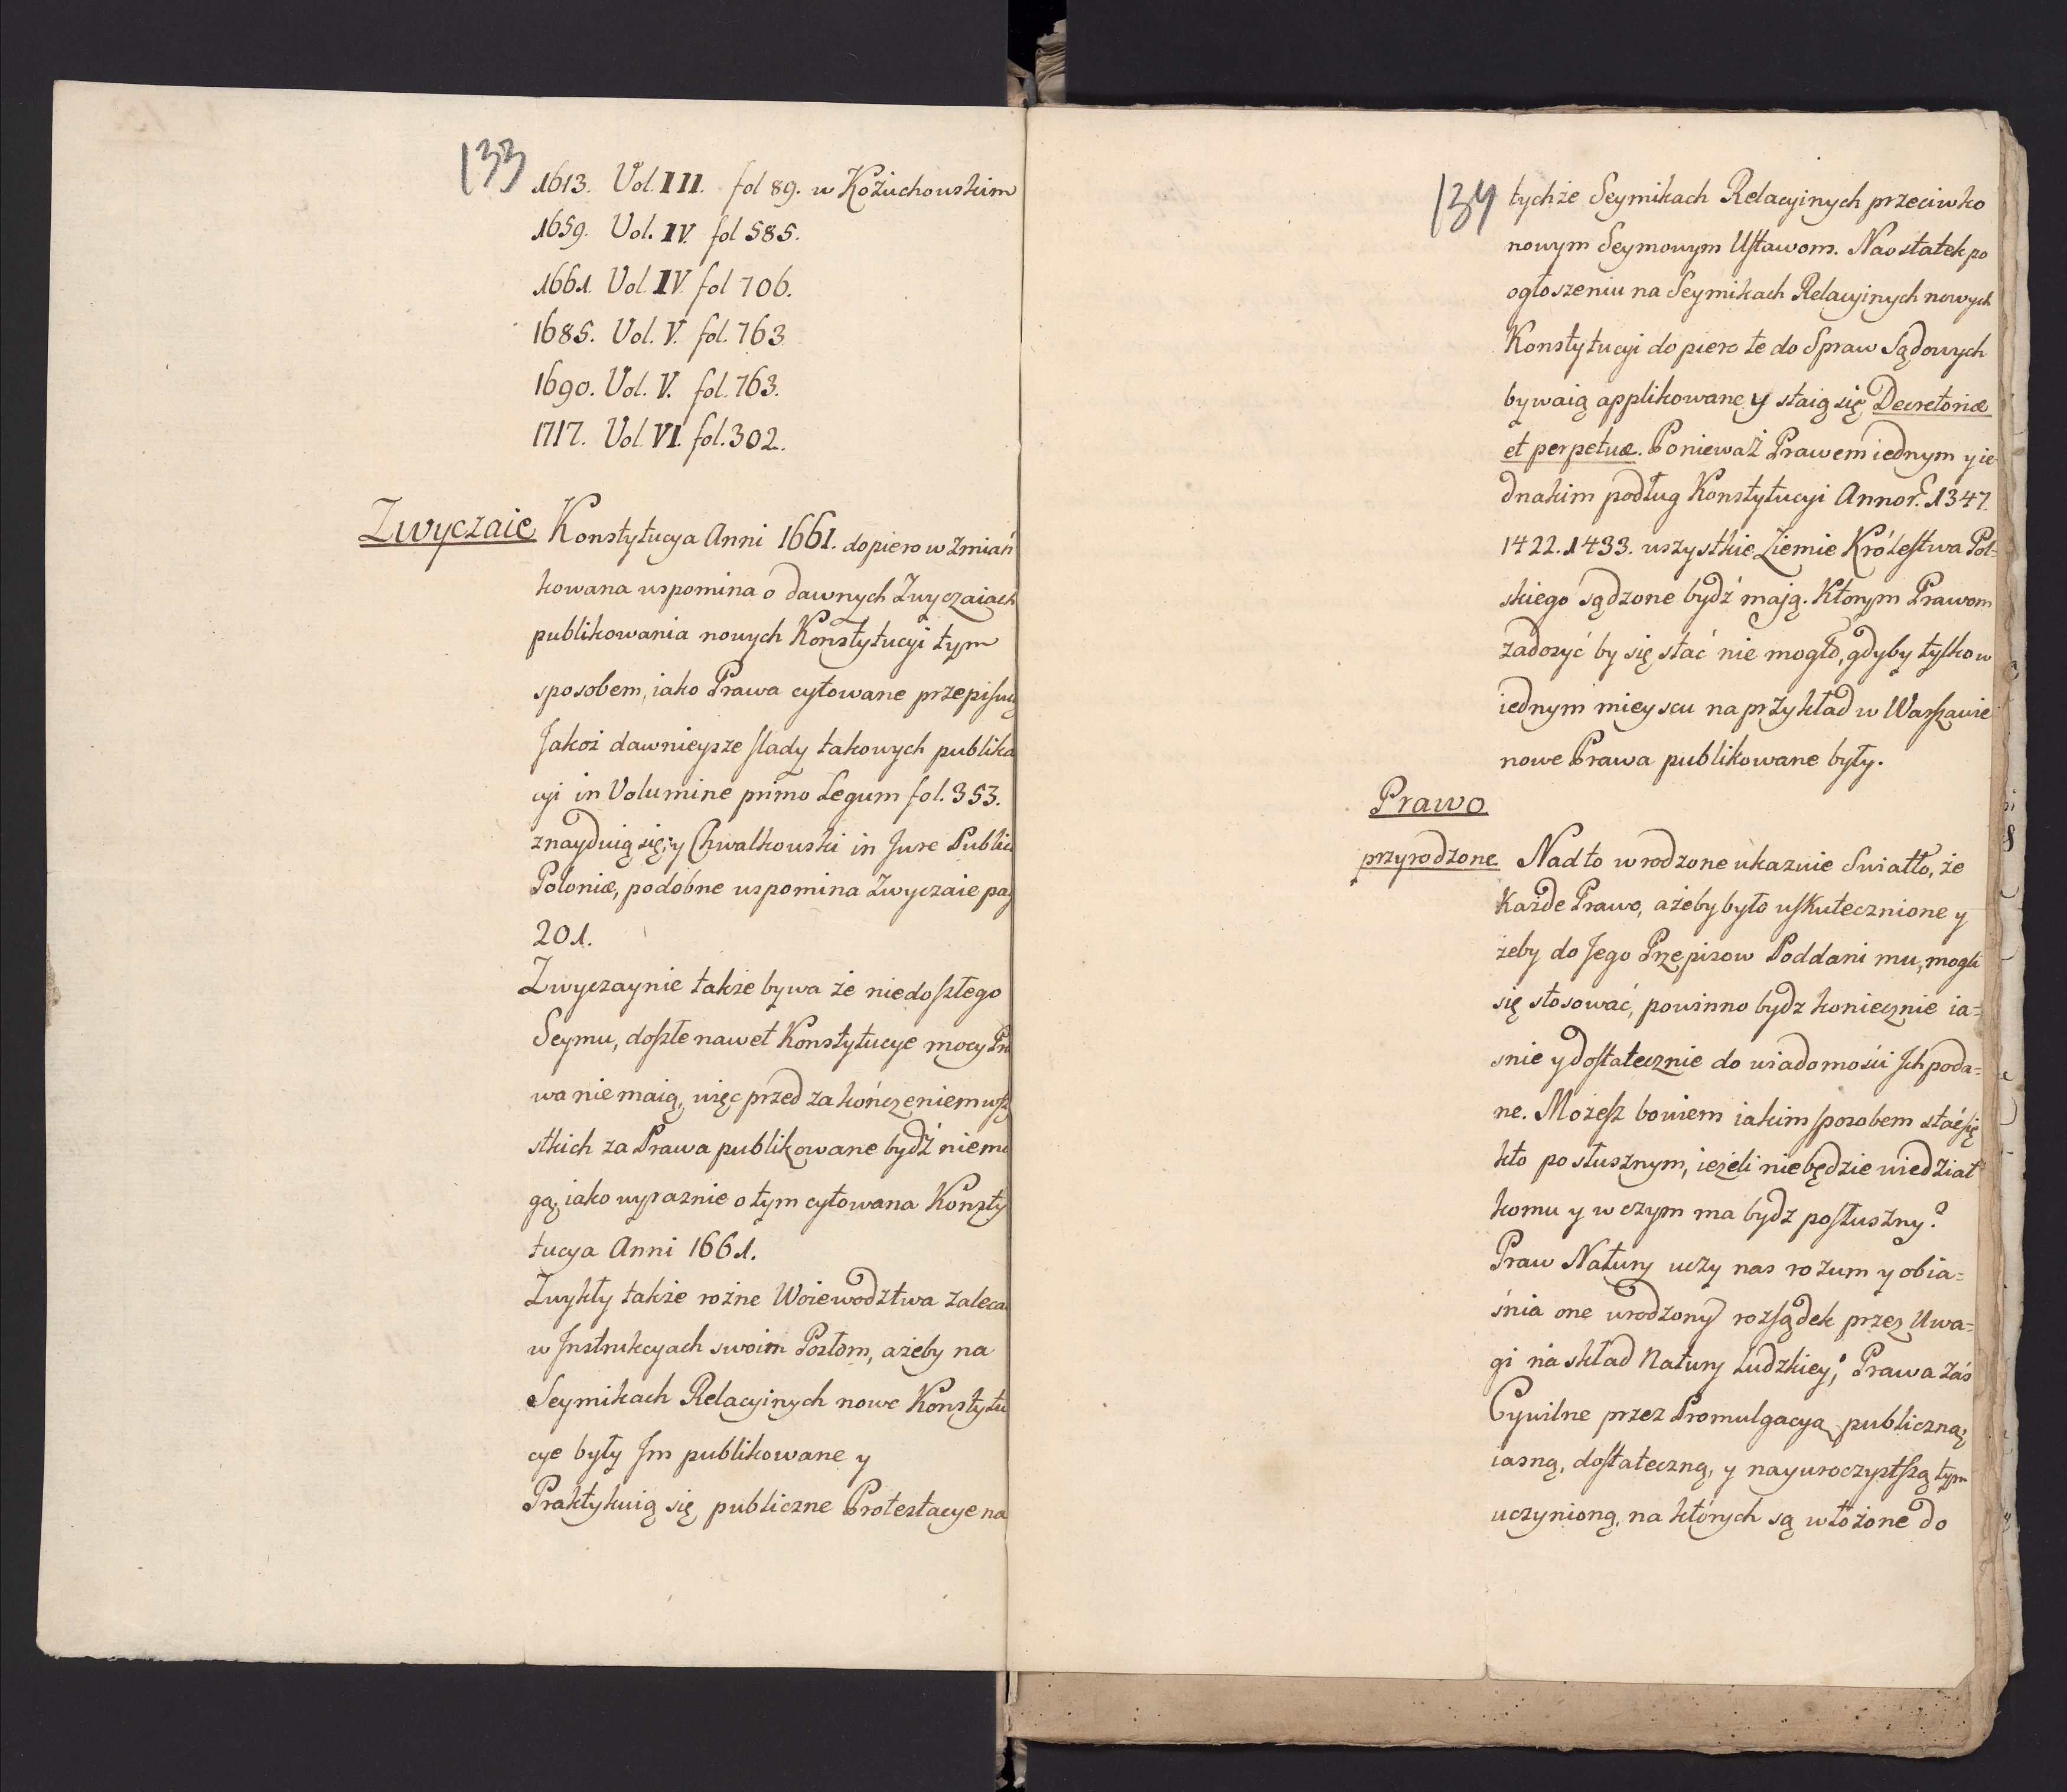 133
1613. Vol. III. fol 89. w Kożuchowskim
1659. Vol. IV. fol 585.
1661. Vol. IV. fol 706.
1685. Vol. V. fol. 763
1690. Vol. V. fol. 763.
1717. Vol. VI. fol. 302.
Zwyczaie Konstytucya Anni 1661. dopiero w zmian
kowana wspomina o dawnych Zwyczaiach
publikowania nowych Konstytucyi tym
sposobem, iako Prawa cytowane przepiſuią
Jakoż dawnieysze ſlady takowych publika
cyi in Volumine primo Legum fol. 353.
znayduią się; y Chwalkowski in Jure Public
Poloniæ, podobne wspomina Zwyczaie pag
201.
Zwyczaynie także bywa że niedoſzłego
Seymu, doſzłe nawet Konstytucye mocy Pra
wa nie maią, więc przed zakończeniem wſzy
stkich za Prawa publikowane bydź niemo
gą, iako wyraznie o tym cytowana Konsty
tucya Anni 1661.
Zwykły także rożne Woiewodztwa zaleca
w Jnstrukcyach swoim Posłom, ażeby na
Seymikach Relacyinych nowe Konstytu
cye były Jm publikowane y
Praktykuią się publiczne Protestacye na
134
tychże Seymikach Relacyinych przeciwko
nowym Seymowym Uſtawom. Naostatek po
ogłoszeniu na Seymikach Relacyinych nowych
Konstytucyi do piero te do Spraw Sądowych
bywaią applikowane y staią się Decretoriæ
et perpetuæ. Ponieważ Prawem iednym y ie
dnakim podług Konstytucyi Annor. 1347.
1422. 1433. wszystkie Ziemie Króleſtwa Pol=
skiego sądzone bydź mają. Ktorym Prawom
zadosyć by się stać nie mogło, gdyby tylko w
iednym mieyscu na przykład w Warſzawie
nowe Prawa publikowane były.
Prawo
przyrodzone Nadto wrodzone ukazuie Swiatło, że
Każde Prawo, ażeby było uſkutecznione y
żeby do Jego Przepisow Poddani mu, mogli
się stosować, powinno bydz koniecznie ia=
snie y doſtatecznie do wiadomości Jch poda=
ne. Możeſz bowiem iakim ſposobem stać się
kto posłusznym, ieżeli nie będzie wiedział
komu y w czym ma bydz poſłuszny?
Praw Natury uczy nas rozum y obia=
śnia one wrodzony rozſądek przez Uwa=
gi na skład Natury Ludzkiey; Prawa zaś
Cywilne przez Promulgacyą publiczną,
iasną, doſtateczną, y nayuroczystſzą tym
uczynioną, na których są włożone do